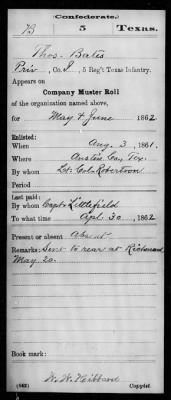 Confederate.
B 5 Texas.
Thos. Bates
Priv, Co. I, 5 Reg't Texas Infantry.
Appears on
Company Muster Roll
of the organization named above,
for May & June 1862
Enlisted:
When Aug. 3, 1861.
Where Austin Co., Tex.
By whom Lt. Col. Robertson
Period
Last paid:
By whom Capt. Littlefield
To what time Apl. 30, 1862
Present or absent Absent
Remarks: Sent to rear at Richmond
May 20.
Book mark:
(642) Copyist.